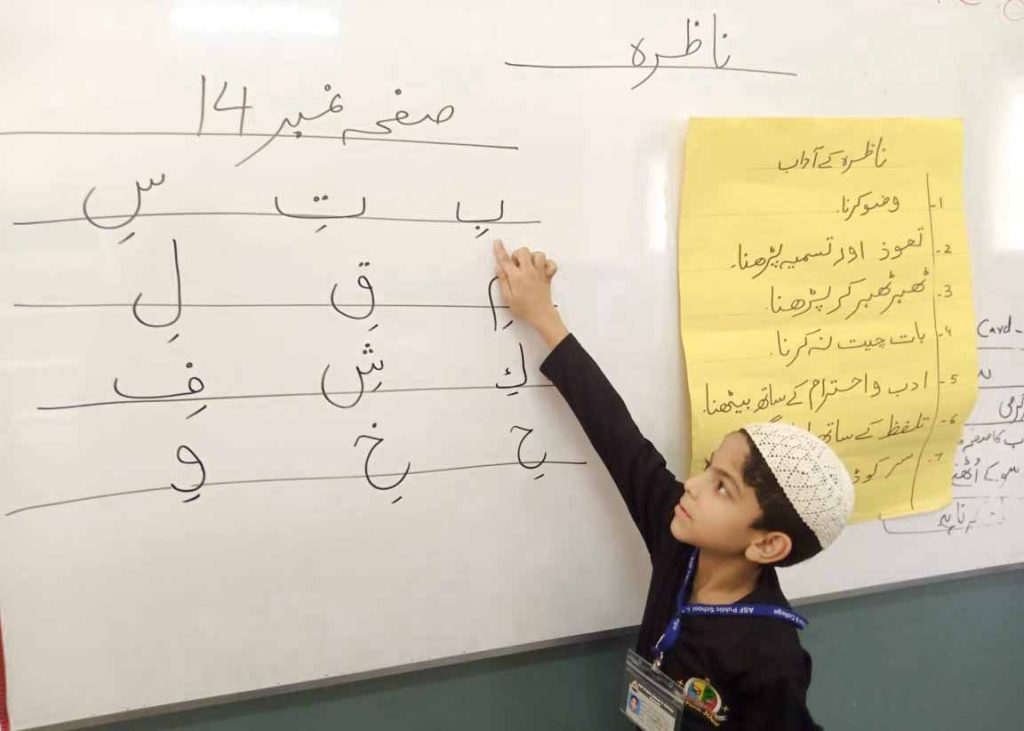 ناظرہ
صفحہ نمبر 14
بِ تِ سِ
مِ قِ لِ
كِ شِ فِ
حِ خِ وِ
ناظرہ کے آداب
1- وضو کرنا۔
2- تعوذ اور تسمیہ پڑھنا۔
3- ٹھہر ٹھہر کر پڑھنا۔
4- بات چیت نہ کرنا۔
5- ادب و احترام کے ساتھ بیٹھنا۔
6- تلفظ کے ساتھ
7- سر کو
Card
ASF Public School &
College